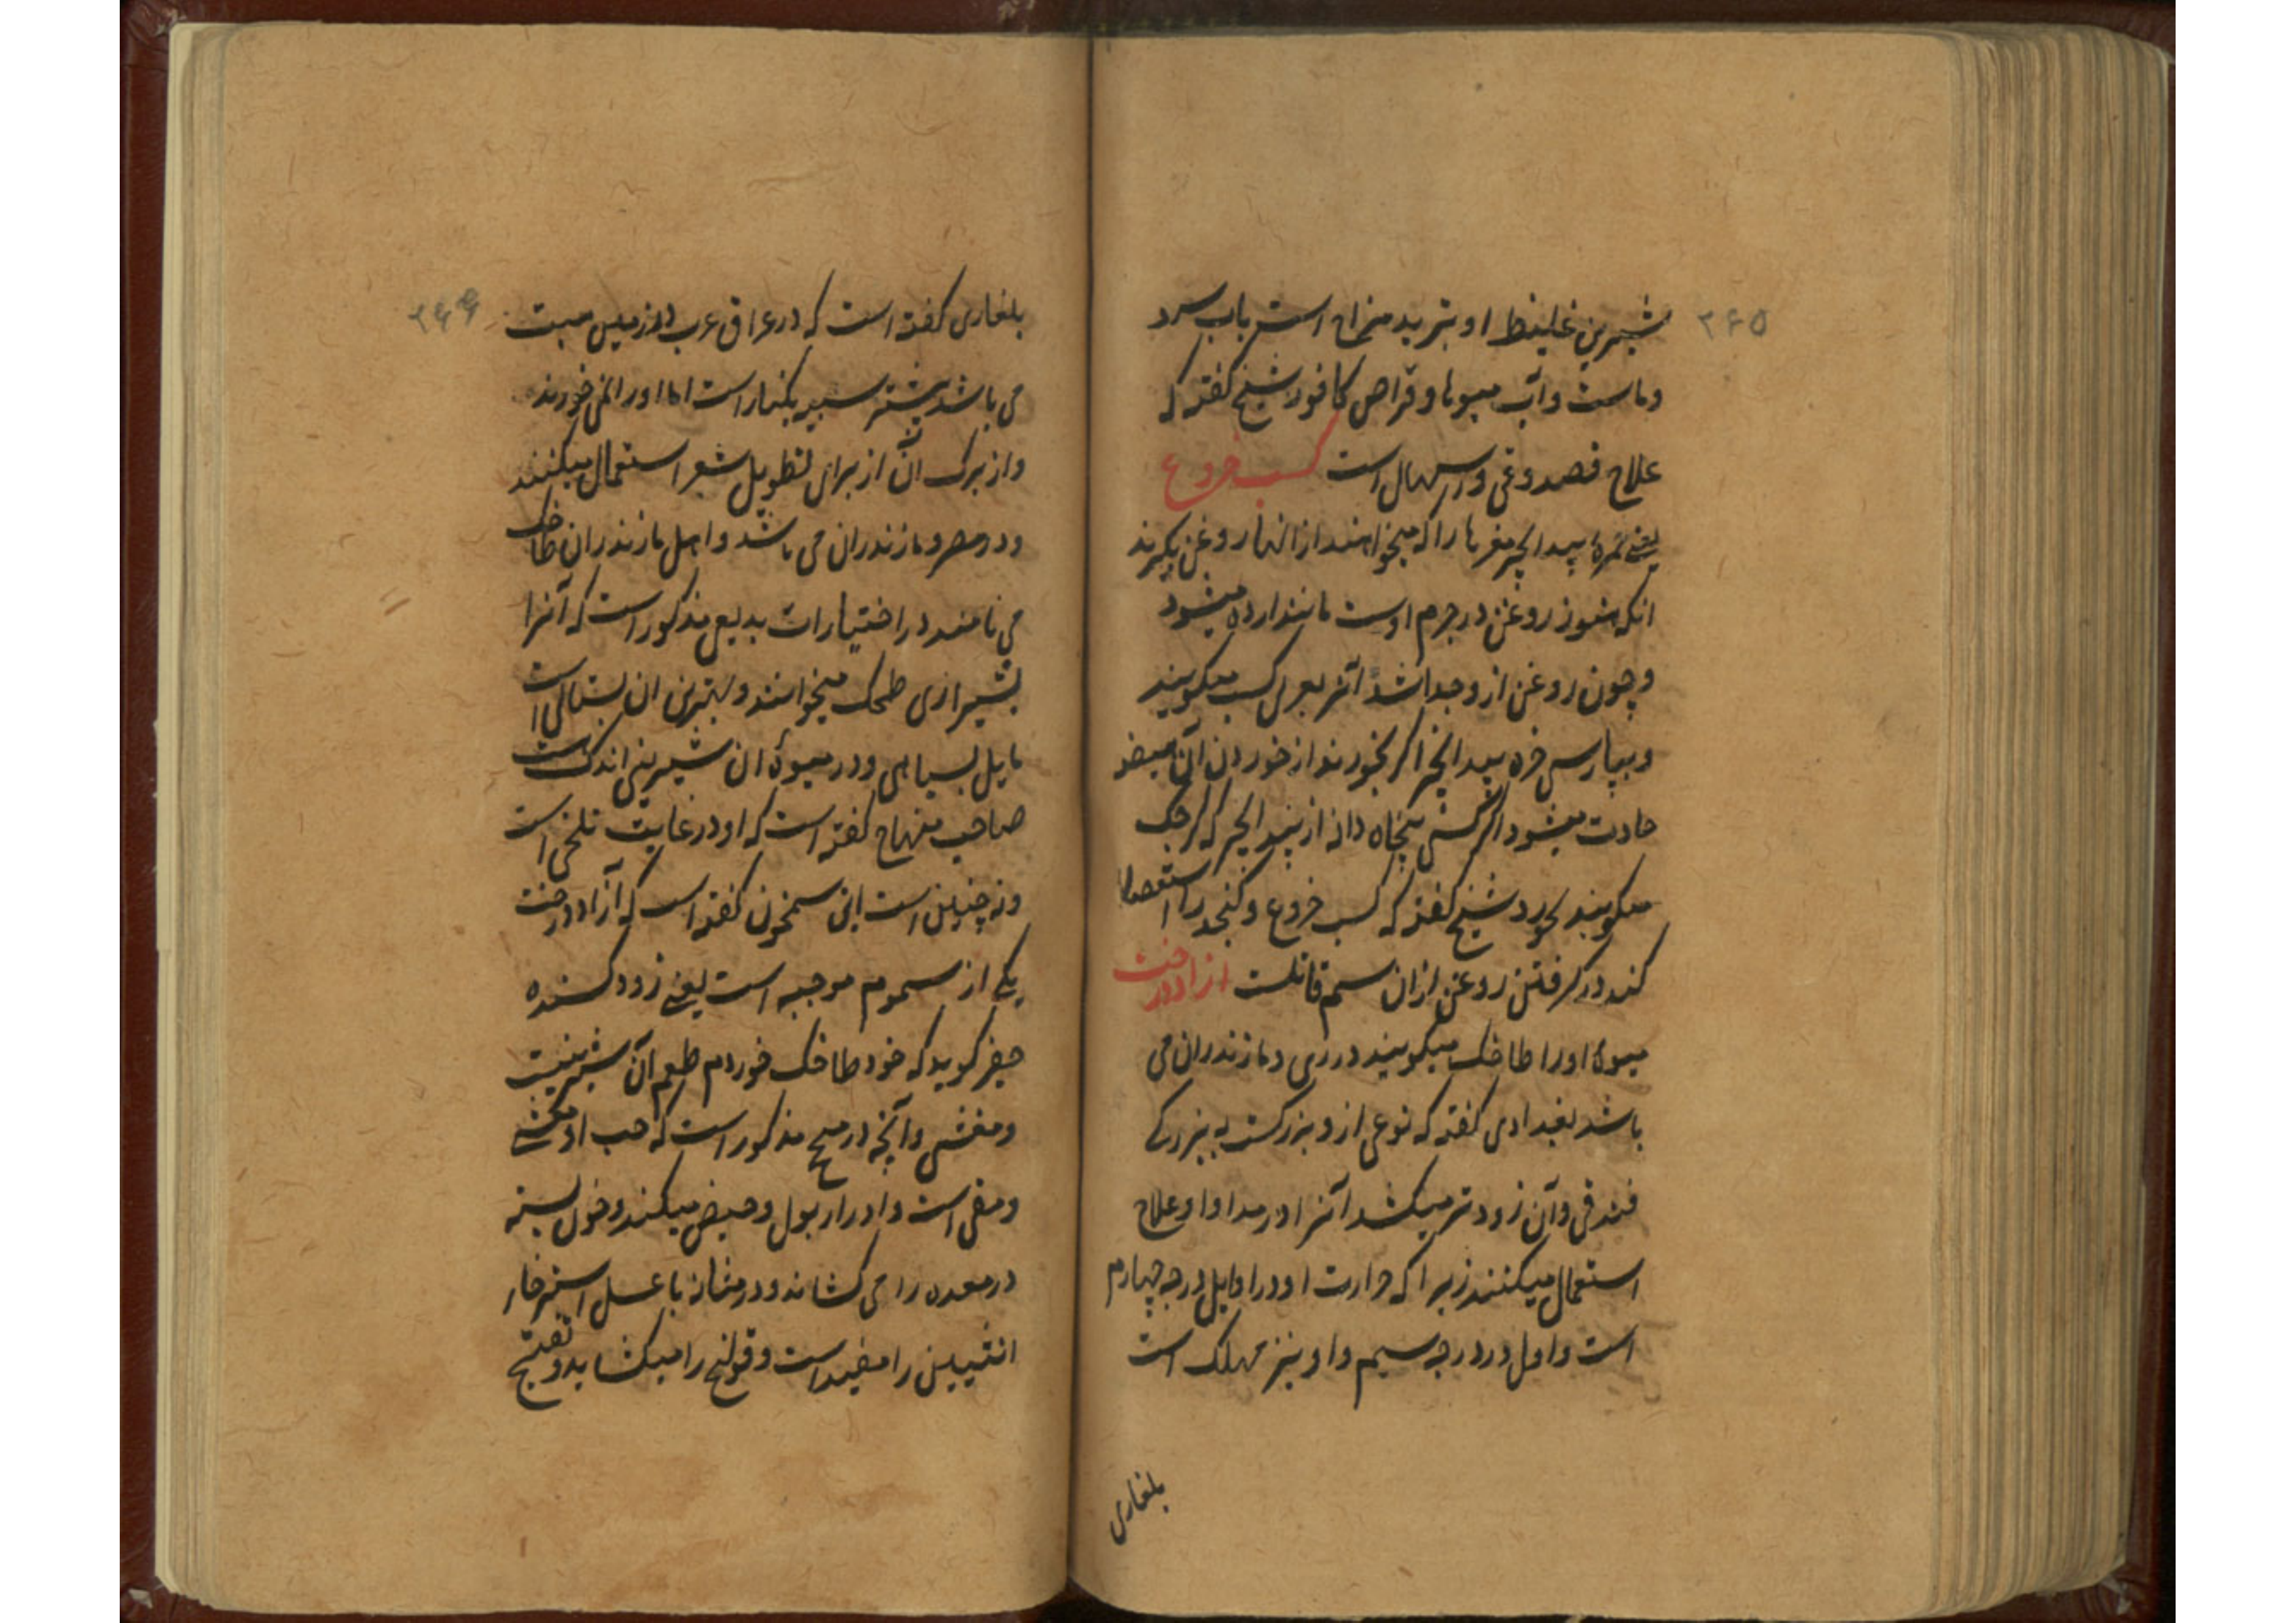 ۲۶۵
شیرین غلیظ او بتبرید مزاج است باب سرد
و ماست و آب میوها و قراص کافور شیخ گفته که
علاج فصد و قی و اسهال است کسب خروع
یعنی ثمره بیدانجیر مغرها را که میخواهند از انها روغن بکیرند
انکه هنوز روغن در جرم اوست مانند ارده میشود
و چون روغن از و جدا شد آنرا بعربی کسب میکویند
و بپارسی خره بیدانجیر اگر بخورند از خوردن آن هیضه
حادث میشود اگر کسی پنجاه دانه از بیدانجیر که کرچک
میکویند بخورد شیخ گفته که کسب خروع و کنجد را استعمال
کند در کرفتن روغن از ان سم قاتلست ازاددرخت
میوهٔ او را طاخک میکویند در ری و مازندران می
باشد بغدادی گفته که نوعی ازو بزرگست به بزرکی
فندقی و آن زودتر میکشد آنرا در مداوا و علاج
استعمال میکنند زیرا که حرارت او در اوایل درجه چهارم
است و اول در درجه سیم و او نیز مهلک است
بلغاری
۲۶۶
بلغاری گفته است که در عراق عرب در زمین مبیت
می باشد بیشتر سپید بکنار است اما او را نمی خورند
و از برک آن از برای تطویل شعر استعمال میکنند
و در مصر و مازندران می باشد و اهل مازندران طاخک
می نامند در اختیارات بدیعی مذکور است که آنرا
بشیرازی طحک میخوانند و بهترین ان بستانی است
مایل بسیاهی و در میوهٔ ان شیرینی اندک است
صاحب منهاج گفته است که او در غایت تلخی است
و نه چنین است ابن سمحون گفته است که آزاددرخت
یکی از سموم موجبه است یعنی زود کشنده
جعفر کوید که خود طاخک خوردم طعم آن شیرینیت
و مغشی و آنچه در صحیح مذکور است که حب او
و مقی است و ادرار بول و حیض میکند و خون بسته
در معده را می کشاند و در مثانه با عسل استرخاء
انثیین را مفید است و قولنج را میکشاید و تفتیح